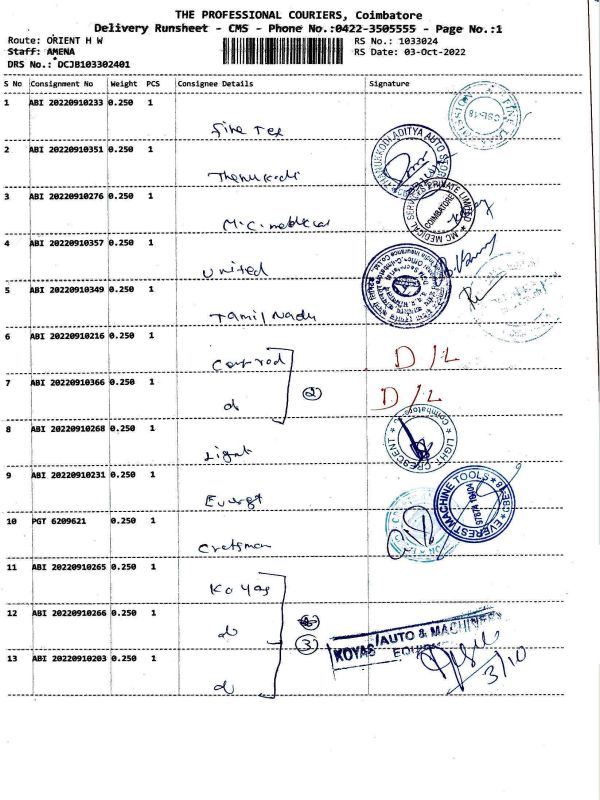 THE PROFESSIONAL COURIERS, Coimbatore
Delivery Runsheet - CMS - Phone No.:0422-3505555 - Page No.:1
Route: ORIENT H W RS No.: 1033024
Staff: AMENA RS Date: 03-Oct-2022
DRS No.: DCJB103302401
S No Consignment No Weight PCS Consignee Details Signature
1 ABI 20220910233 0.250 1
Fine Tex
2 ABI 20220910351 0.250 1
Thanukodi
3 ABI 20220910276 0.250 1
M.C. medical
MC MEDICAL SERVICES PRIVATE LIMITED
COIMBATORE
4 ABI 20220910357 0.250 1
United
5 ABI 20220910349 0.250 1
Tamil Nadu
6 ABI 20220910216 0.250 1
D/L
7 ABI 20220910366 0.250 1
d 2 D/L
8 ABI 20220910268 0.250 1
Light
LIGHT CRESCENT Coimbatore
9 ABI 20220910231 0.250 1
Evergt
EVEREST MACHINE TOOLS
10 PGT 6209621 0.250 1
11 ABI 20220910265 0.250 1
Koyas
12 ABI 20220910266 0.250 1
d 3
KOYAS AUTO & MACHINERY
13 ABI 20220910203 0.250 1
d
3/10